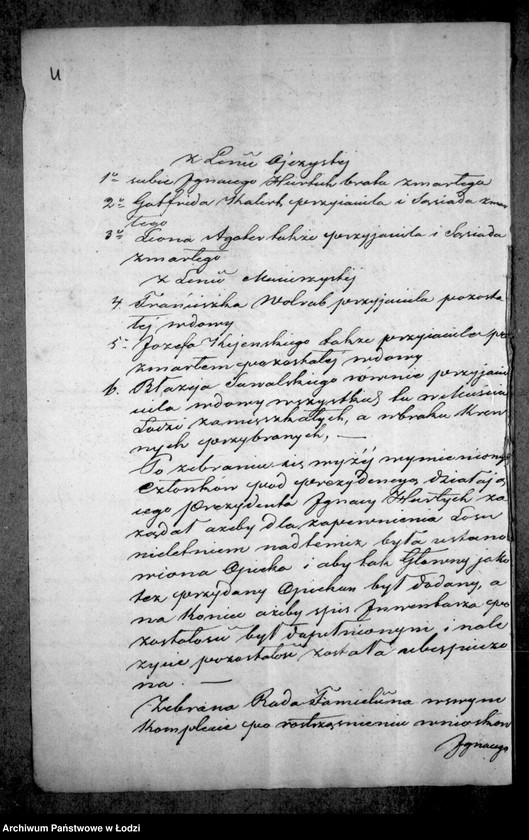 z Linii Ojczystej
1o siebie Ignacego Hurtich brata zmarłego
2o Gottfrieda przyjaciela i Sąsiada zmar
łego
3o Leona także przyjaciela i Sąsiada
zmarłego
z Linii Macierzystej
4. Franciszka Wolrab przyjaciela pozosta
łej wdowy
5. Józefa Kijenskiego także przyjaciela po
zmarłem pozostałej wdowy
6. Błażeja Suwalskiego równie przyjaci
ela wdowy wszystkich tu w Mieście
Łodzi zamieszkałych, a w braku Krew
nych przybranych, —
Po zebraniu się wyżej wymienionych
Członków pod prezydencyą działają
cego prezydenta Ignacy za
żądał ażeby dla zapewnienia Losu
nieletnim nad temiż była ustano
wiona Opieka i aby tak Główny jako
też przydany Opiekun był dodany, a
na koniec ażeby spis Inwentarza po
zostałości był dopełnionym i nale
życie pozostałość została ubespieczo
na. —
Zebrana Rada Familijna w swym
Komplecie po roztrząśnieniu wniosków
Ignacego
Archiwum Państwowe w Łodzi